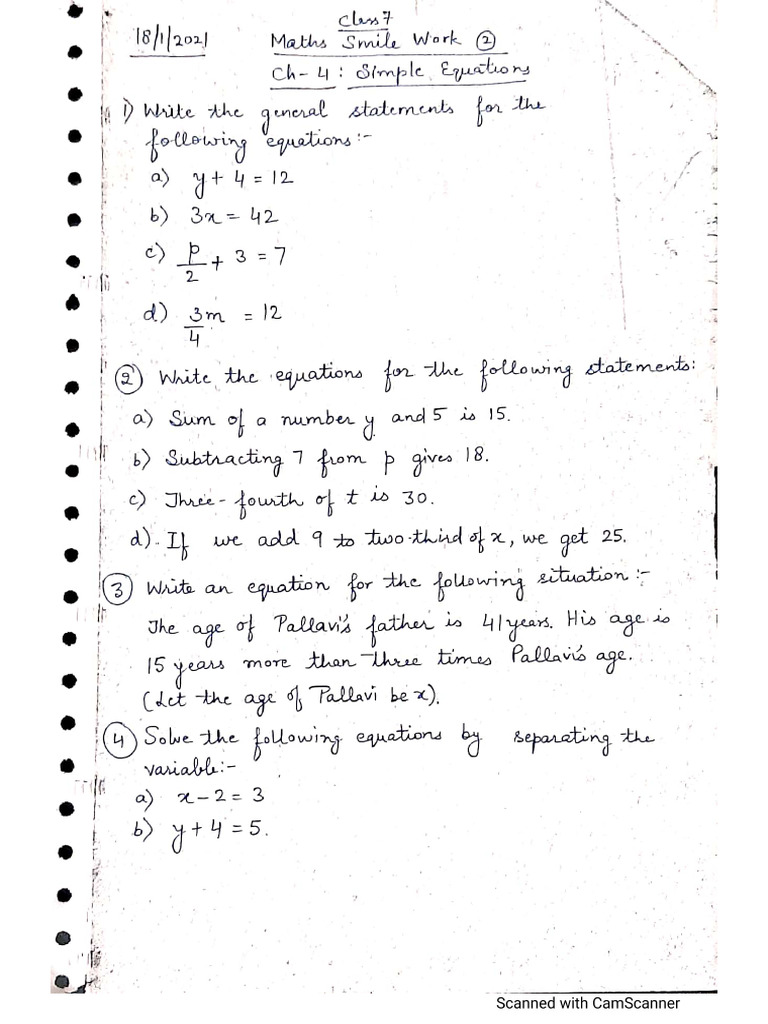 Class 7
18/1/2021 Maths Smile Work ②
Ch-4: Simple Equations
1) Write the general statements for the
following equations:-
a) y + 4 = 12
b) 3x = 42
c) p/2 + 3 = 7
d) 3/4 m = 12
② Write the equations for the following statements:
a) Sum of a number y and 5 is 15.
b) Subtracting 7 from p gives 18.
c) Three-fourth of t is 30.
d). If we add 9 to two-third of x, we get 25.
③ Write an equation for the following situation:-
The age of Pallavi's father is 41 years. His age is
15 years more than three times Pallavi's age.
(Let the age of Pallavi be x).
④ Solve the following equations by separating the
variable:-
a) x - 2 = 3
b) y + 4 = 5.
Scanned with CamScanner